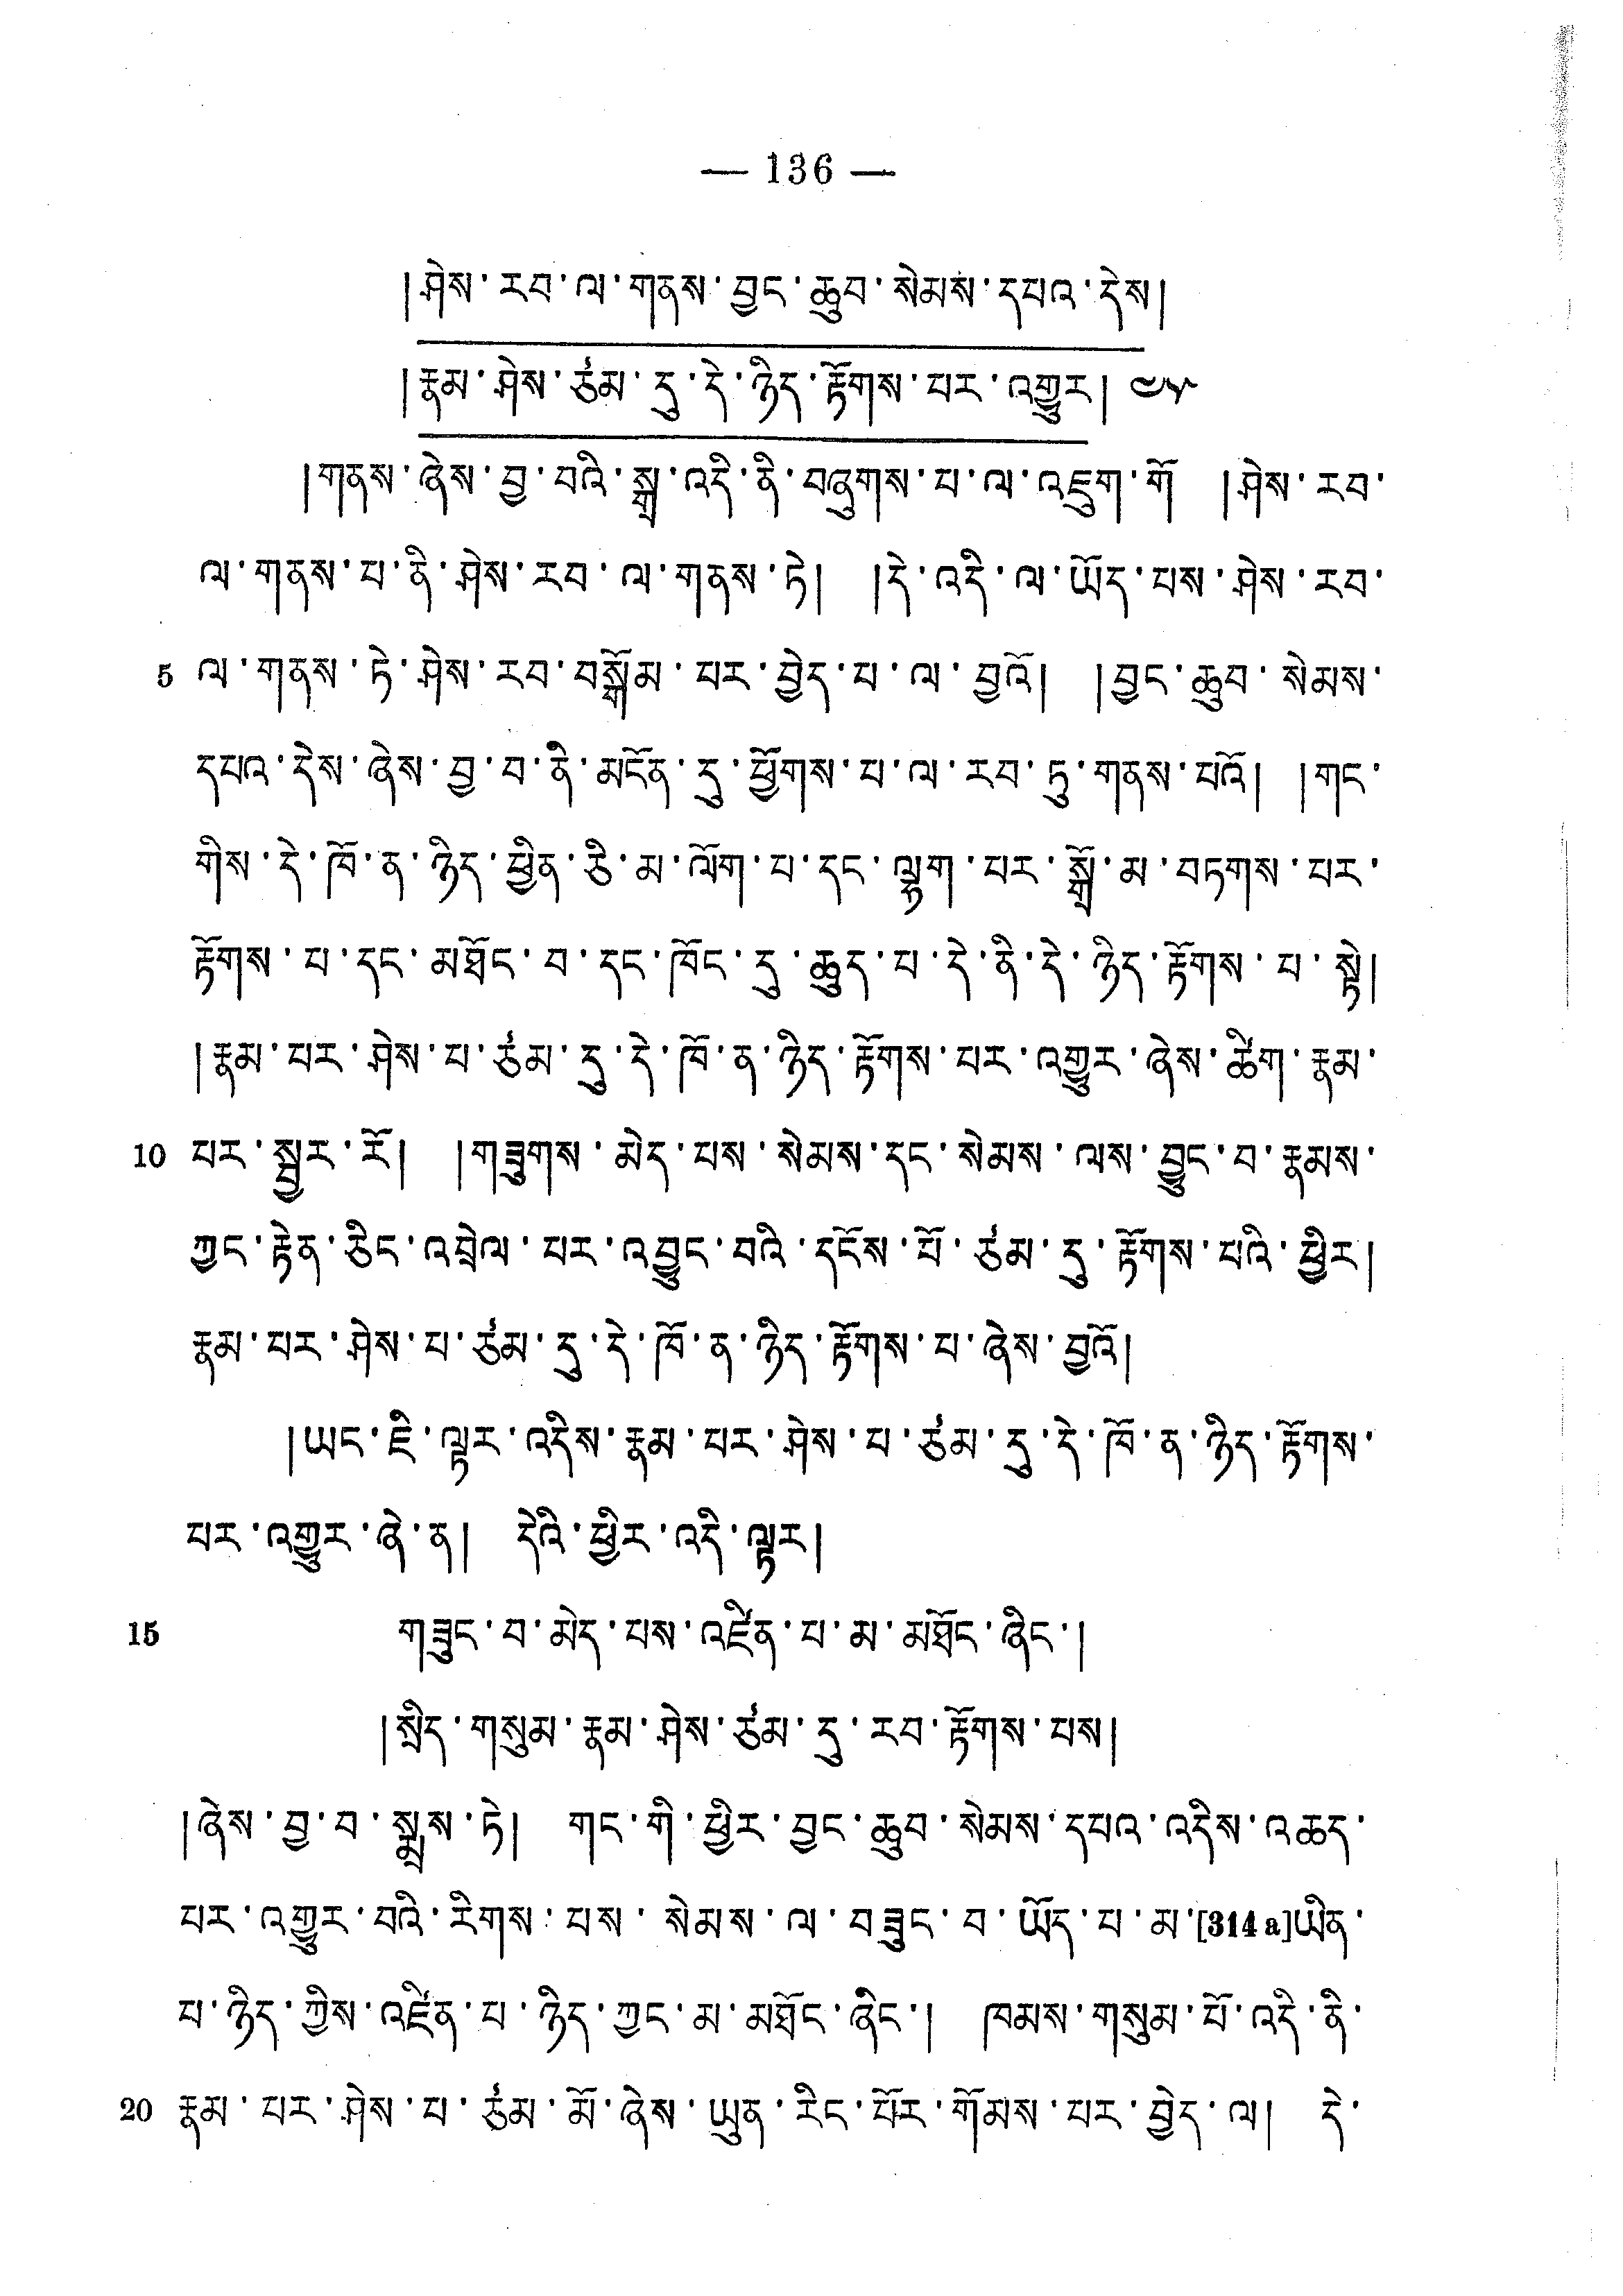 — 136 —
།ཤེས་རབ་ལ་གནས་བྱང་ཆུབ་སེམས་དཔའ་དེས།
།རྣམ་ཤེས་ཙམ་དུ་དེ་ཉིད་རྟོགས་པར་འགྱུར། ༤༥
།གནས་ཞེས་བྱ་བའི་སྒྲ་འདི་ནི་བཞུགས་པ་ལ་འཇུག་གོ །ཤེས་རབ་
ལ་གནས་པ་ནི་ཤེས་རབ་ལ་གནས་ཏེ། །དེ་འདི་ལ་ཡོད་པས་ཤེས་རབ་
5 ལ་གནས་ཏེ་ཤེས་རབ་བསྒོམ་པར་བྱེད་པ་ལ་བྱའོ། །བྱང་ཆུབ་སེམས་
དཔའ་དེས་ཞེས་བྱ་བ་ནི་མངོན་དུ་ཕྱོགས་པ་ལ་རབ་ཏུ་གནས་པའོ། །གང་
གིས་དེ་ཁོ་ན་ཉིད་ཕྱིན་ཅི་མ་ལོག་པ་དང་ལྷག་པར་སྒྲོ་མ་བཏགས་པར་
རྟོགས་པ་དང་མཐོང་བ་དང་ཁོང་དུ་ཆུད་པ་དེ་ནི་དེ་ཉིད་རྟོགས་པ་སྟེ།
།རྣམ་པར་ཤེས་པ་ཙམ་དུ་དེ་ཁོ་ན་ཉིད་རྟོགས་པར་འགྱུར་ཞེས་ཚིག་རྣམ་
10 པར་སྦྱར་རོ། །གཟུགས་མེད་པས་སེམས་དང་སེམས་ལས་བྱུང་བ་རྣམས་
ཀྱང་རྟེན་ཅིང་འབྲེལ་པར་འབྱུང་བའི་དངོས་པོ་ཙམ་དུ་རྟོགས་པའི་ཕྱིར།
རྣམ་པར་ཤེས་པ་ཙམ་དུ་དེ་ཁོ་ན་ཉིད་རྟོགས་པ་ཞེས་བྱའོ།
།ཡང་ཇི་ལྟར་འདིས་རྣམ་པར་ཤེས་པ་ཙམ་དུ་དེ་ཁོ་ན་ཉིད་རྟོགས་
པར་འགྱུར་ཞེ་ན། དེའི་ཕྱིར་འདི་ལྟར།
15 གཟུང་བ་མེད་པས་འཛིན་པ་མ་མཐོང་ཞིང་།
།སྲིད་གསུམ་རྣམ་ཤེས་ཙམ་དུ་རབ་རྟོགས་པས།
།ཞེས་བྱ་བ་སྨྲས་ཏེ། གང་གི་ཕྱིར་བྱང་ཆུབ་སེམས་དཔའ་འདིས་འཆད་
པར་འགྱུར་བའི་རིགས་པས་སེམས་ལ་བཟུང་བ་ཡོད་པ་མ་[314a]ཡིན་
པ་ཉིད་ཀྱིས་འཛིན་པ་ཉིད་ཀྱང་མ་མཐོང་ཞིང་། ཁམས་གསུམ་པོ་འདི་ནི་
20 རྣམ་པར་ཤེས་པ་ཙམ་མོ་ཞེས་ཡུན་རིང་པོར་གོམས་པར་བྱེད་ལ། དེ་